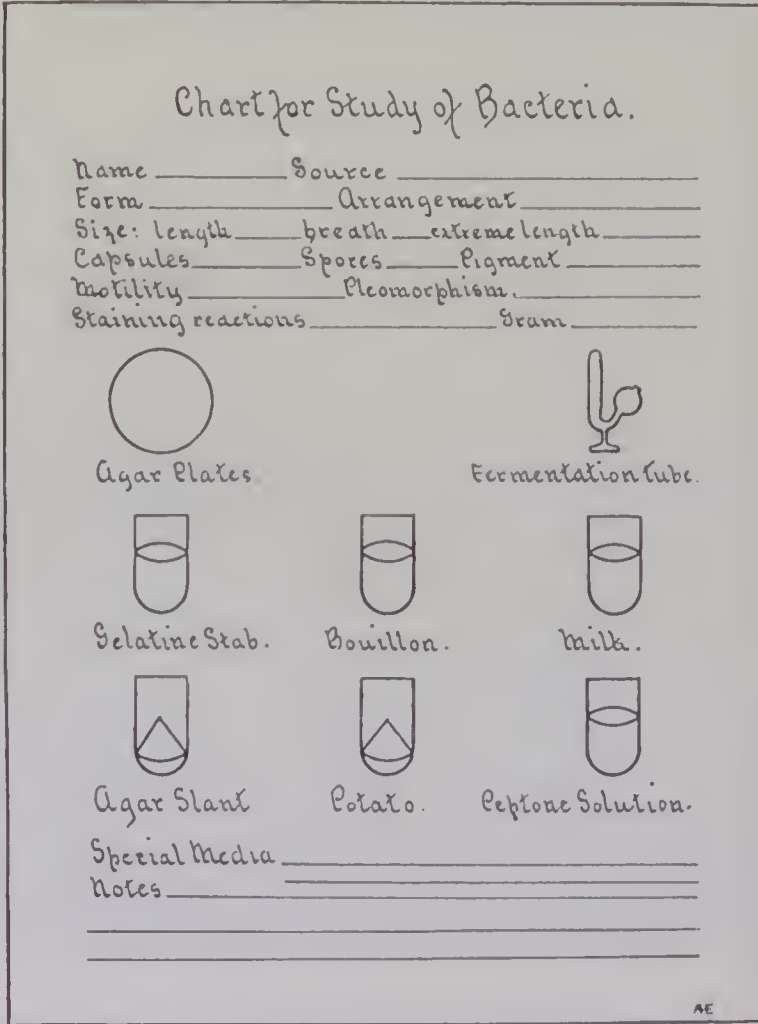 Chart for Study of Bacteria.
Name Source
Form Arrangement
Size: length breath extreme length
Capsules Spores Pigment
Motility Pleomorphism.
Staining reactions Gram
Agar Plates Fermentation tube.
Gelatine Stab. Bouillon. Milk.
Agar Slant Potato. Peptone Solution.
Special Media
Notes
AE